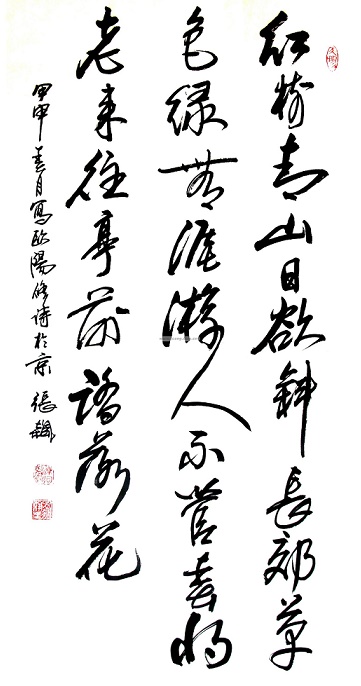 红树青山日欲斜长郊草
色绿无涯游人不管春将
老来往亭前踏落花
甲申春月写欧阳修诗于京 张